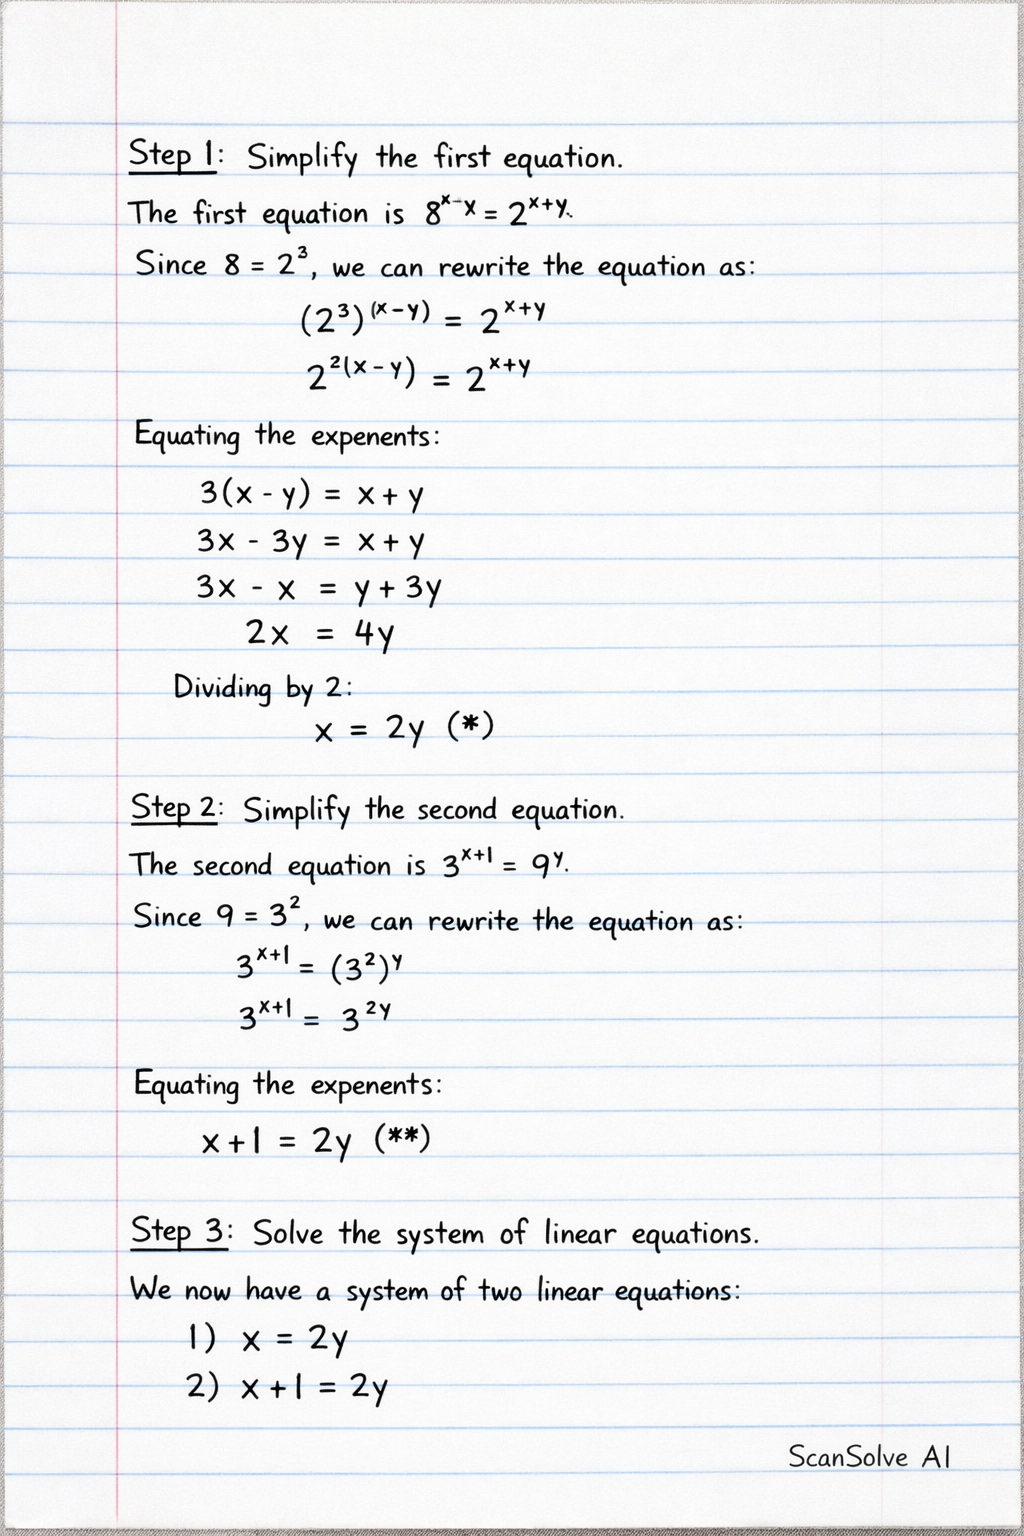 Step 1: Simplify the first equation.
The first equation is 8ˣ⁻x = 2ˣ⁺ʸ.
Since 8 = 2³, we can rewrite the equation as:
(2³)⁽ˣ⁻ʸ⁾ = 2ˣ⁺ʸ
2²⁽ˣ⁻ʸ⁾ = 2ˣ⁺ʸ
Equating the expenents:
3(x - y) = x + y
3x - 3y = x + y
3x - x = y + 3y
2x = 4y
Dividing by 2:
x = 2y (*)
Step 2: Simplify the second equation.
The second equation is 3ˣ⁺¹ = 9ʸ.
Since 9 = 3², we can rewrite the equation as:
3ˣ⁺¹ = (3²)ʸ
3ˣ⁺¹ = 3²ʸ
Equating the expenents:
x + 1 = 2y (**)
Step 3: Solve the system of linear equations.
We now have a system of two linear equations:
1) x = 2y
2) x + 1 = 2y
ScanSolve AI